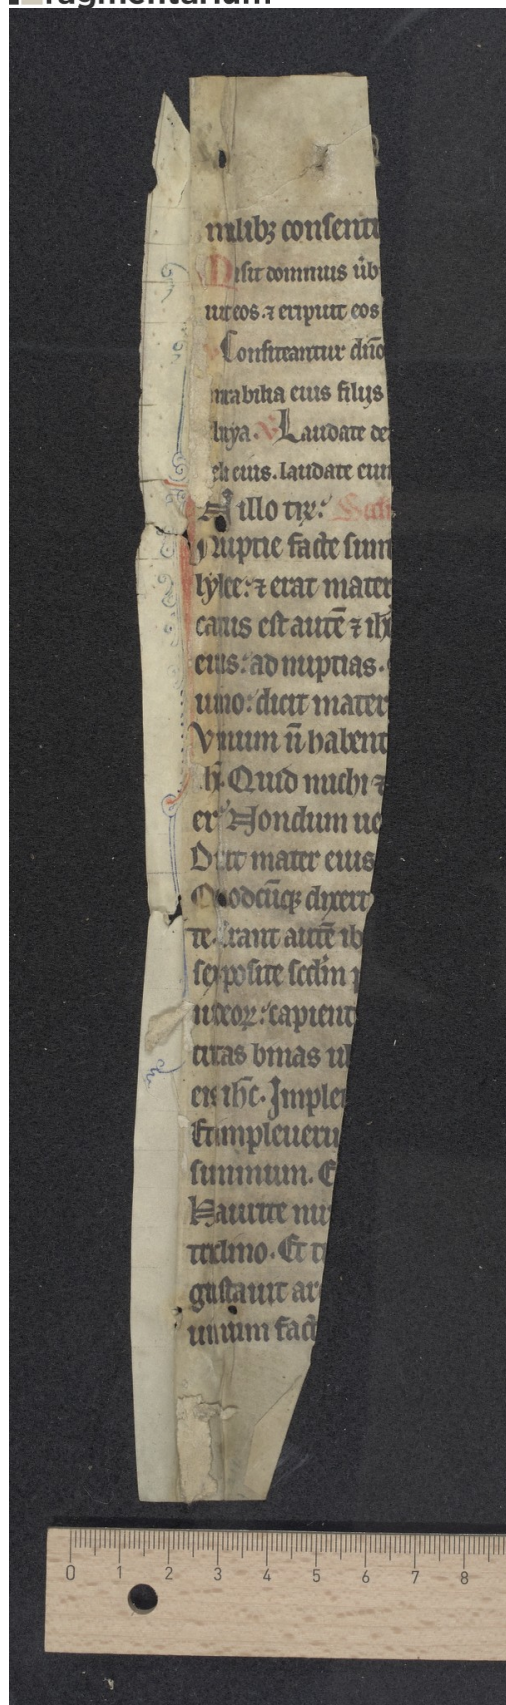 milibꝫ consenti
Misit dominus ũb
iut eos. ⁊ eripuit eos
Confiteantur dño
mirabilia eius filijs
luya. V Laudate de
eli eius. laudate eum
illo tꝑꝛ: Scdm
Nuptie facte sun
lylee: ⁊ erat mater
catus est autē ⁊ ihc
eius: ad nuptias.
uino: dicit mater
Vinum ñ habent
Quid michi ⁊
er Nondum ue
Dicit mater eius
Quodcūqꝫ dixerit
te. Erant autē ib
sex posite scdm
iudeoꝝ: capient
etras binas ul
eis ihc. Implet
Et impleueru
summum. E
Haurite nu
triclino. Et t
gustauit ar
uinum fact
0 1 2 3 4 5 6 7 8